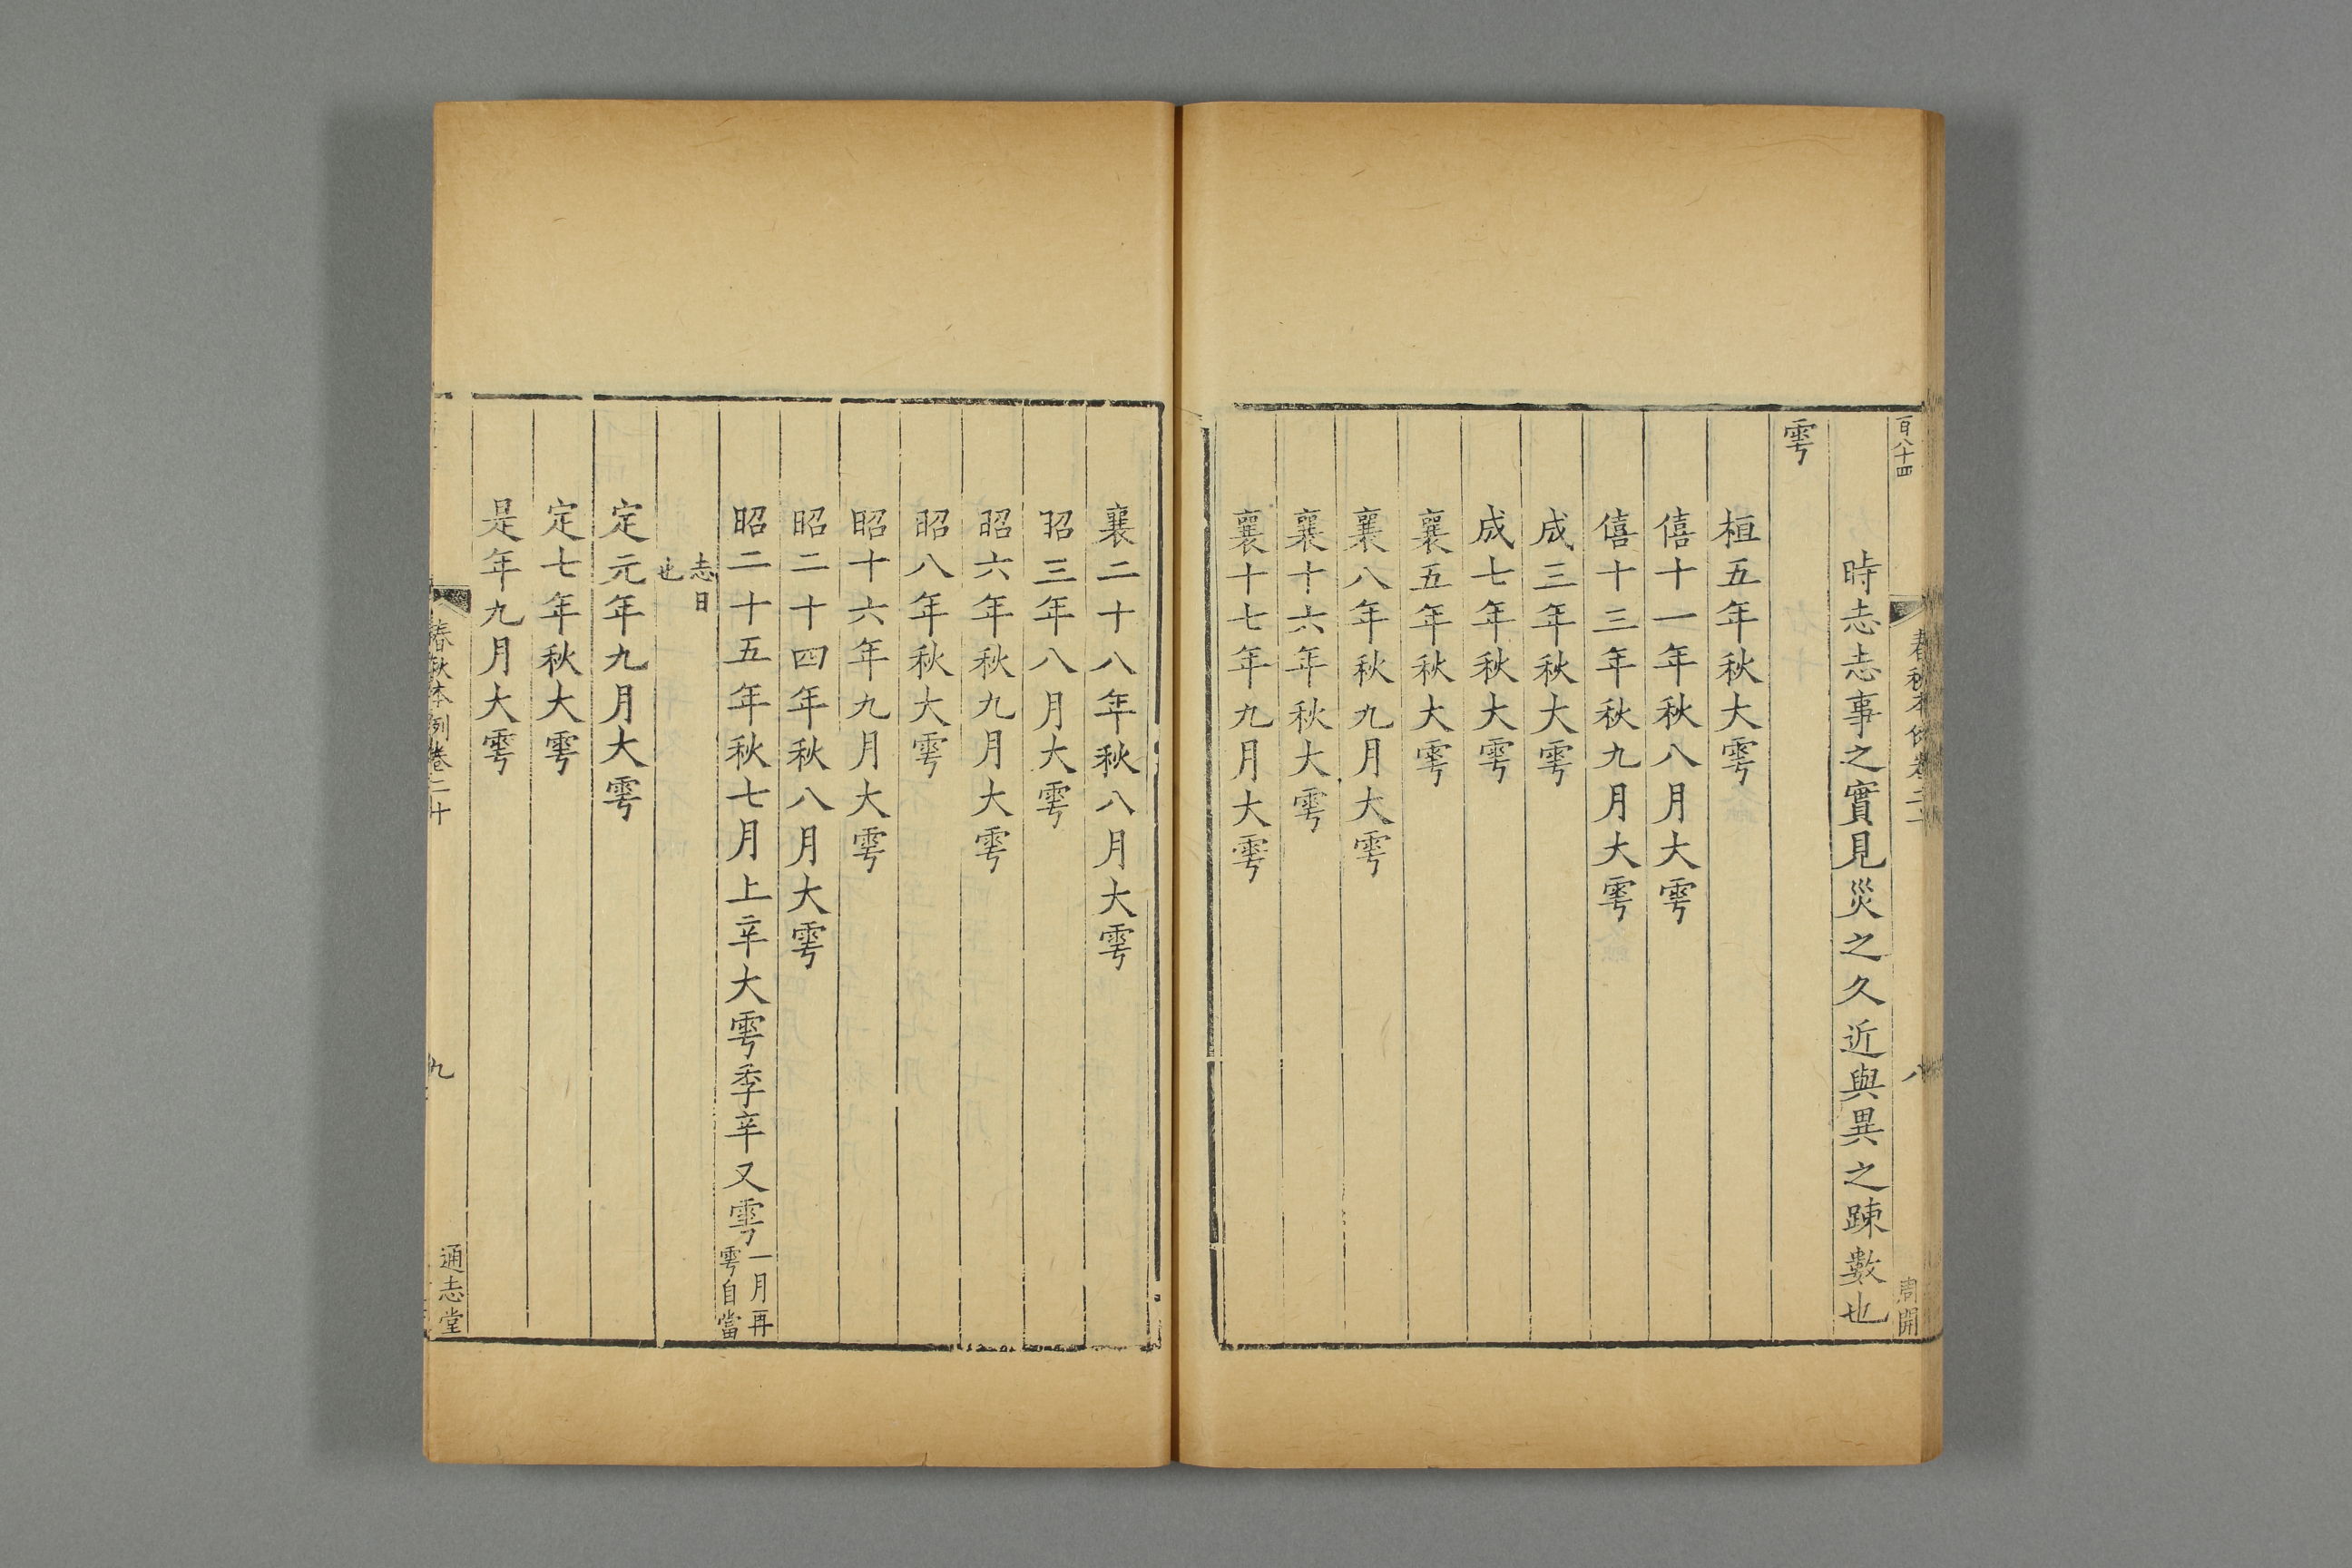 百八十四
春秋本例卷二十
八
周開
時志志事之實見災之久近與異之踈數也
雩
桓五年秋大雩
僖十一年秋八月大雩
僖十三年秋九月大雩
成三年秋大雩
成七年秋大雩
襄五年秋大雩
襄八年秋九月大雩
襄十六年秋大雩
襄十七年九月大雩
襄二十八年秋八月大雩
昭三年八月大雩
昭六年秋九月大雩
昭八年秋大雩
昭十六年九月大雩
昭二十四年秋八月大雩
昭二十五年秋七月上辛大雩季辛又雩一月再雩自當
志日也
定元年九月大雩
定七年秋大雩
是年九月大雩
春秋本例卷二十
九
通志堂